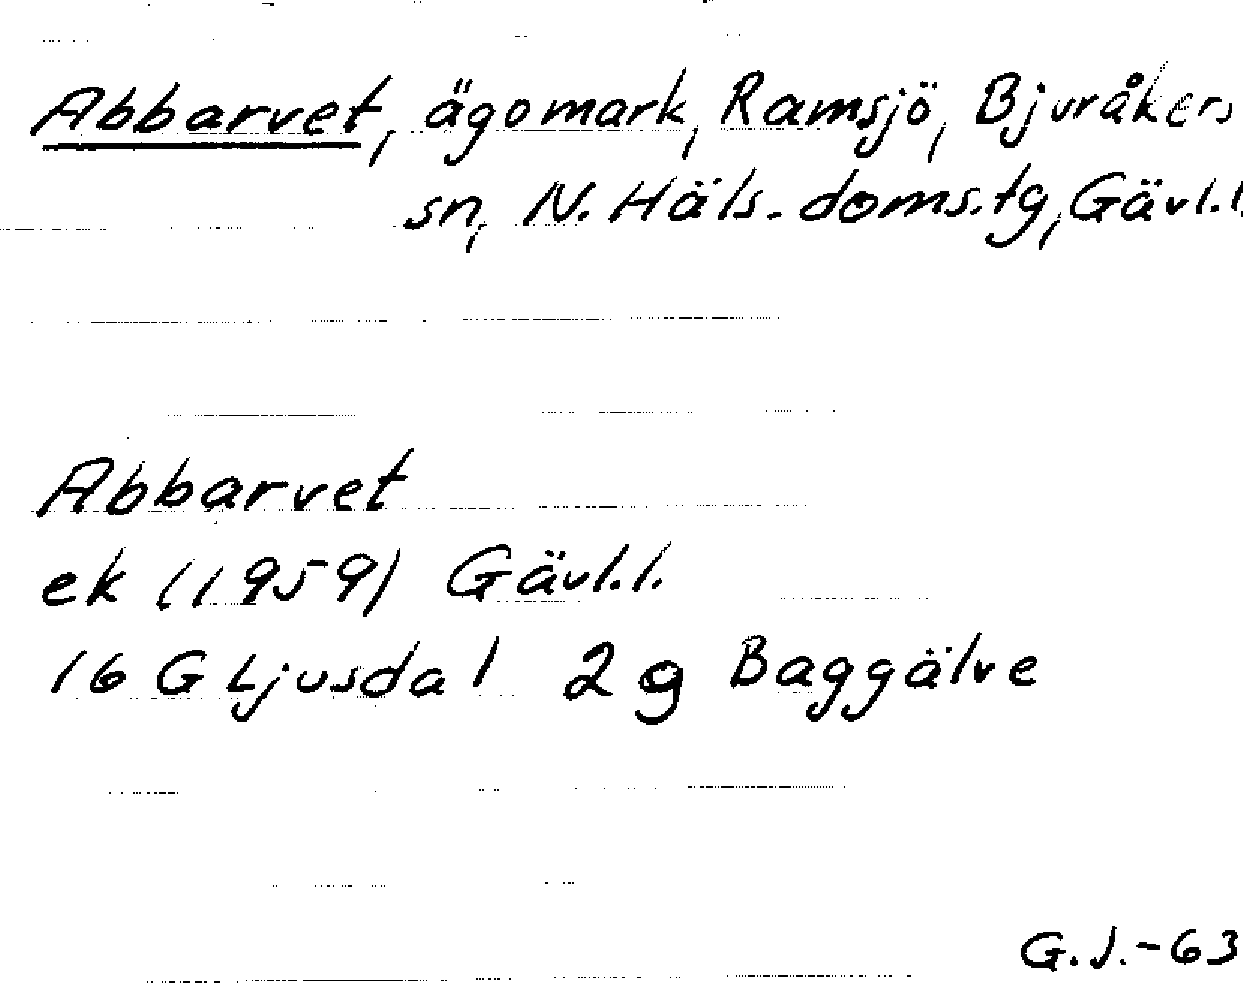 Abbarvet, ägomark, Ramsjö, Bjuråkers
sn, N. Häls. doms.tg, Gävl.l.
Abbarvet
ek (1959) Gävl.l.
16 G Ljusdal 2 g Baggälve
G.J.-63